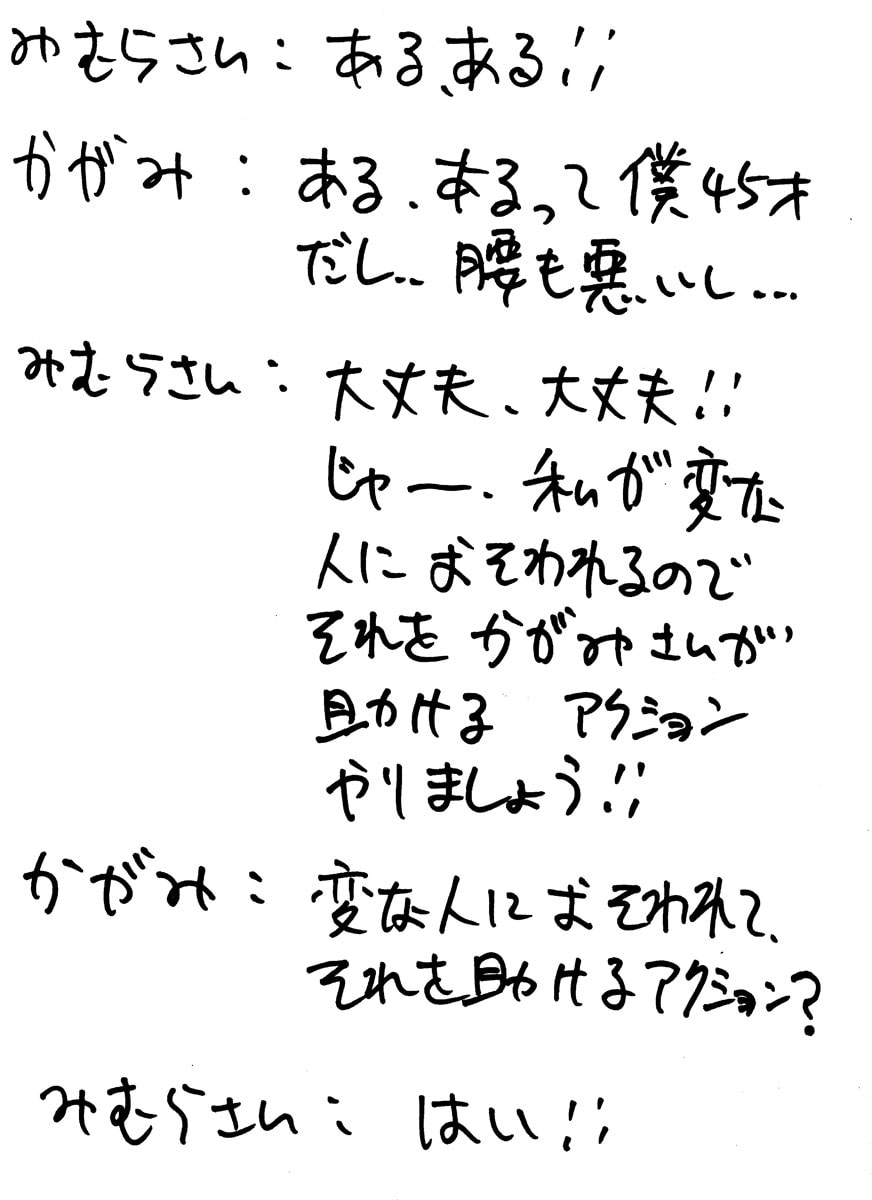 みむらさん: ある、ある!!
かがみ: ある、あるって僕45才
だし.. 腰も悪いし...
みむらさん: 大丈夫、大丈夫!!
じゃー、私が変な
人におそわれるので
それをかがみさんが
助ける アクション
やりましょう!!
かがみ: 変な人におそわれて、
それを助けるアクション?
みむらさん: はい!!